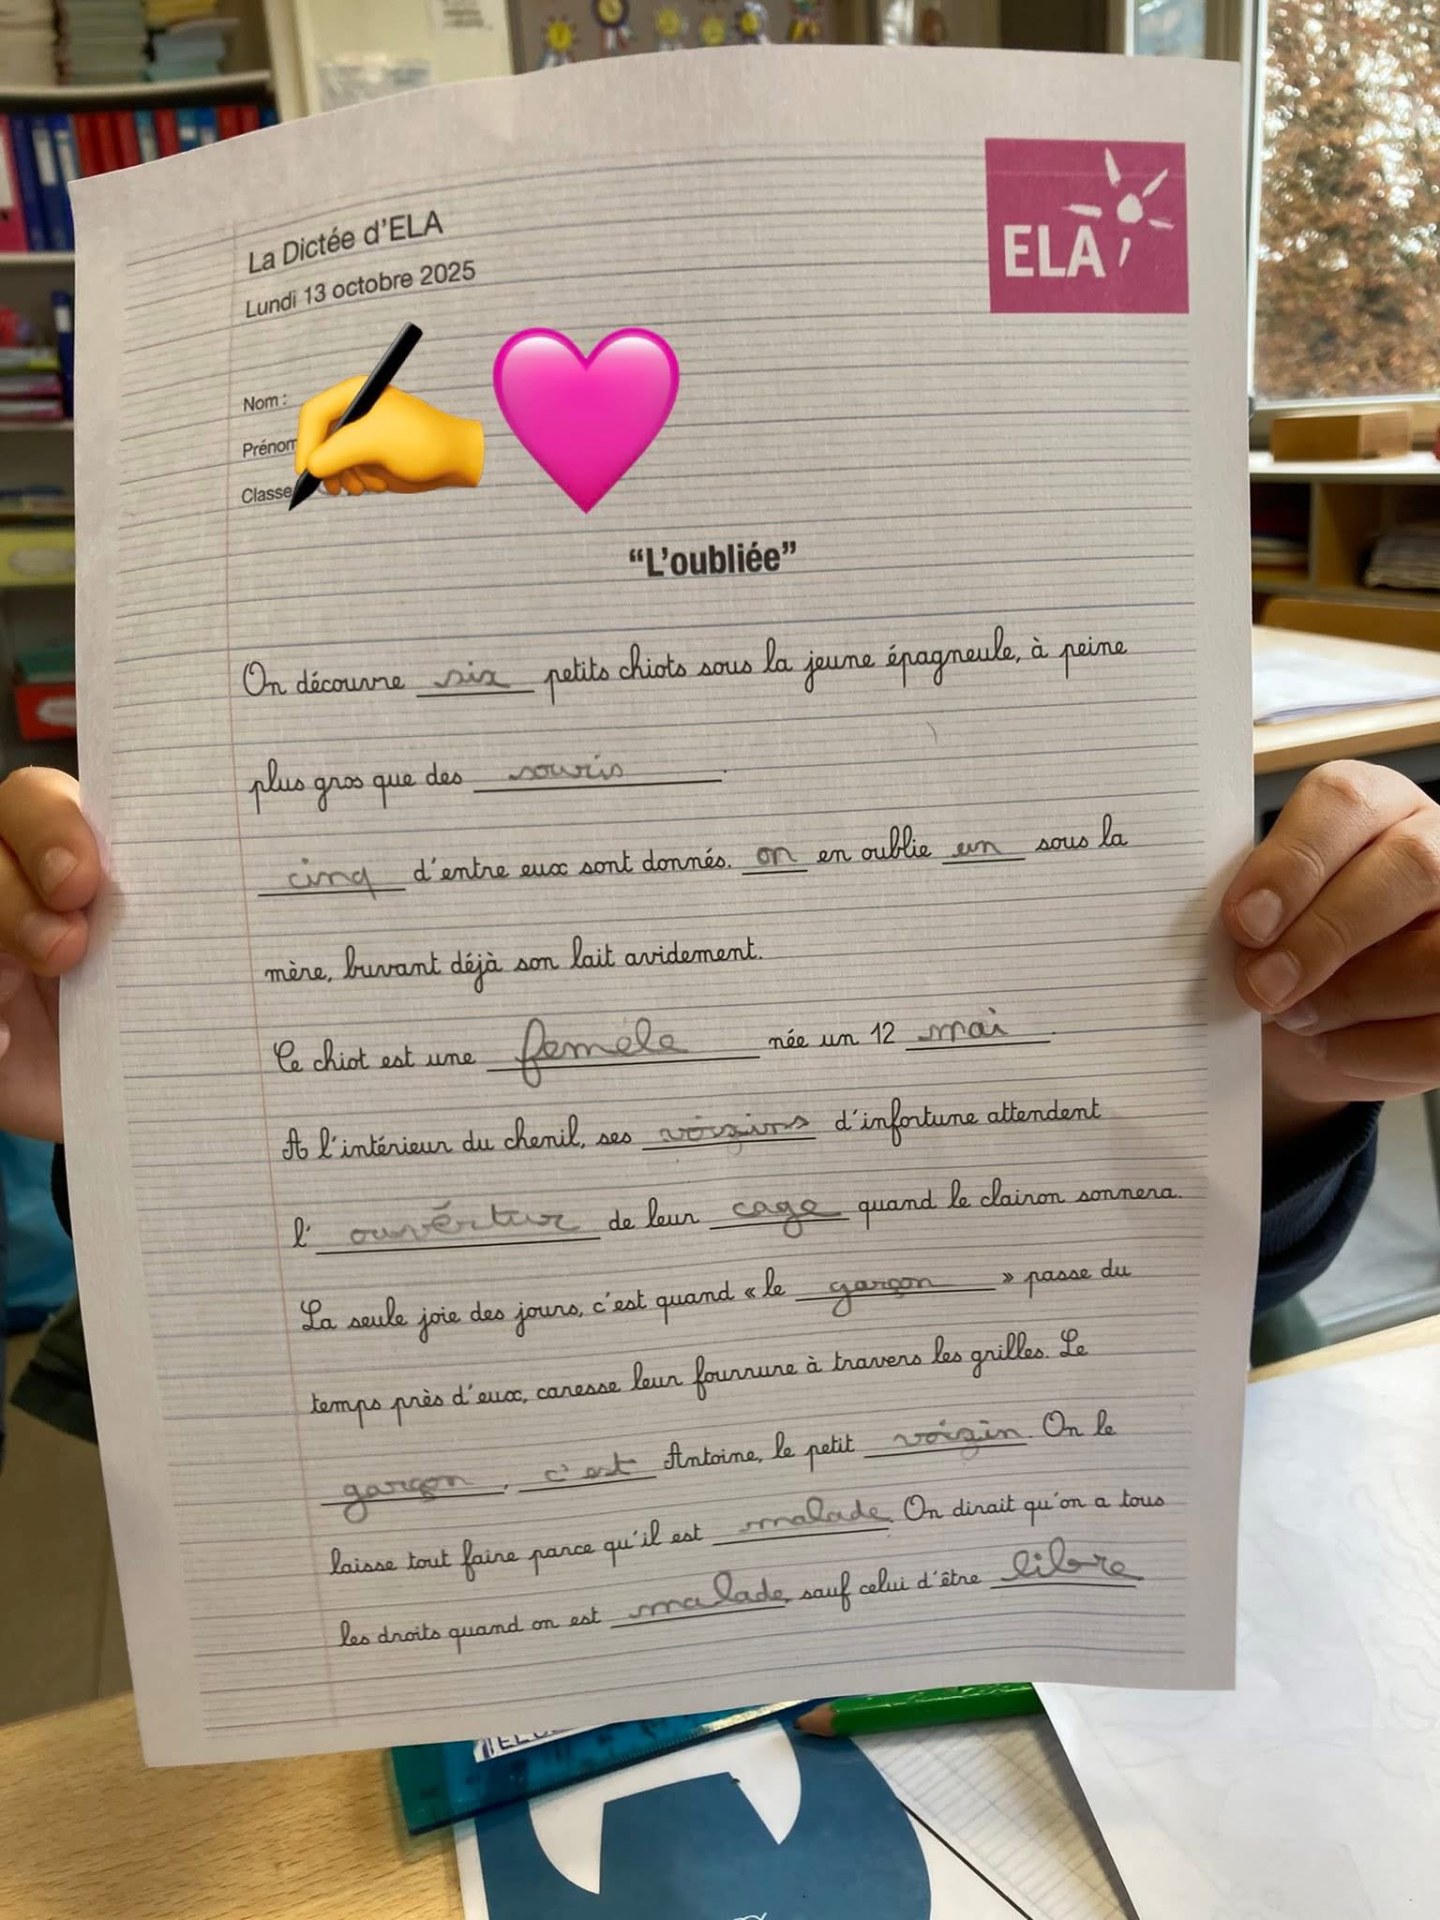 La Dictée d'ELA
Lundi 13 octobre 2025
ELA
Nom :
Prénom
Classe
“L'oubliée”
On découvre six petits chiots sous la jeune épagneule, à peine
plus gros que des souris.
cinq d'entre eux sont donnés. on en oublie un sous la
mère, buvant déjà son lait avidement.
Ce chiot est une femele née un 12 mai.
A l'intérieur du chenil, ses voizins d'infortune attendent
l' ouvértur de leur cage quand le clairon sonnera.
La seule joie des jours, c'est quand « le garçon » passe du
temps près d'eux, caresse leur fourrure à travers les grilles. Le
garçon, c'est Antoine, le petit voizin. On le
laisse tout faire parce qu'il est malade. On dirait qu'on a tous
les droits quand on est malade, sauf celui d'être libre